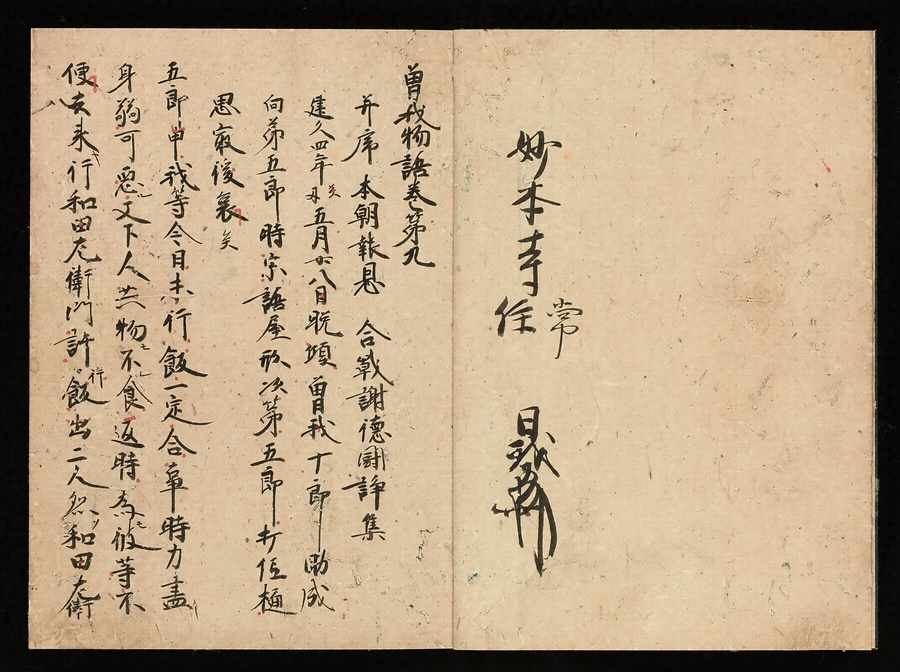 妙本寺
常
住
日我
曽我物語巻第九
并序 本朝報恩 合戦謝徳闘諍集
建久四年五月廿八日晩頃曽我十郎助成
向弟五郎時宗語屋形次第五郎打任
思寂後裏矣
五郎申我等今日未行飯一定合事時力盡
身弱可悪又下人共物不食返時為彼等不
便去来行和田左衛門許飯出二人然和田左衛